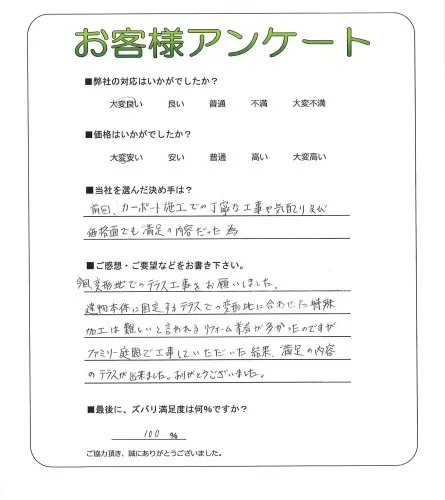 お客様アンケート
■弊社の対応はいかがでしたか?
大変良い 良い 普通 不満 大変不満
■価格はいかがでしたか?
大変安い 安い 普通 高い 大変高い
■当社を選んだ決め手は?
前回、カーポート施工での丁寧な工事や気配り及び
価格面でも満足の内容だった為
■ご感想・ご要望などをお書き下さい。
変形地でのテラス工事をお願いしました。
建物本体に固定するテラスでの変形地に合わせた特殊
加工は難しいと言われるリフォーム業者が多かったのですが
ファミリー庭園で工事していただいた結果、満足の内容
のテラスが出来ました。ありがとうございました。
■最後に、ズバリ満足度は何%ですか?
100 %
ご協力頂き、誠にありがとうございました。